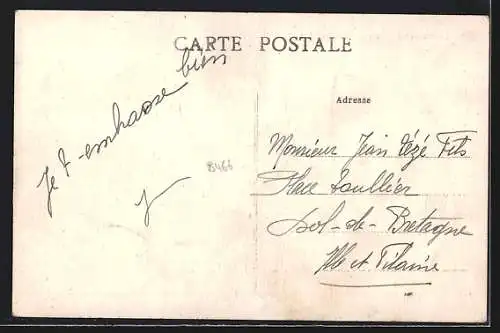 CARTE POSTALE
Je t-embrasse bien
J
8466
Adresse
Monsieur Jean Tézé Fils
Place Toullier
Dol-de-Bretagne
Ille et Vilaine